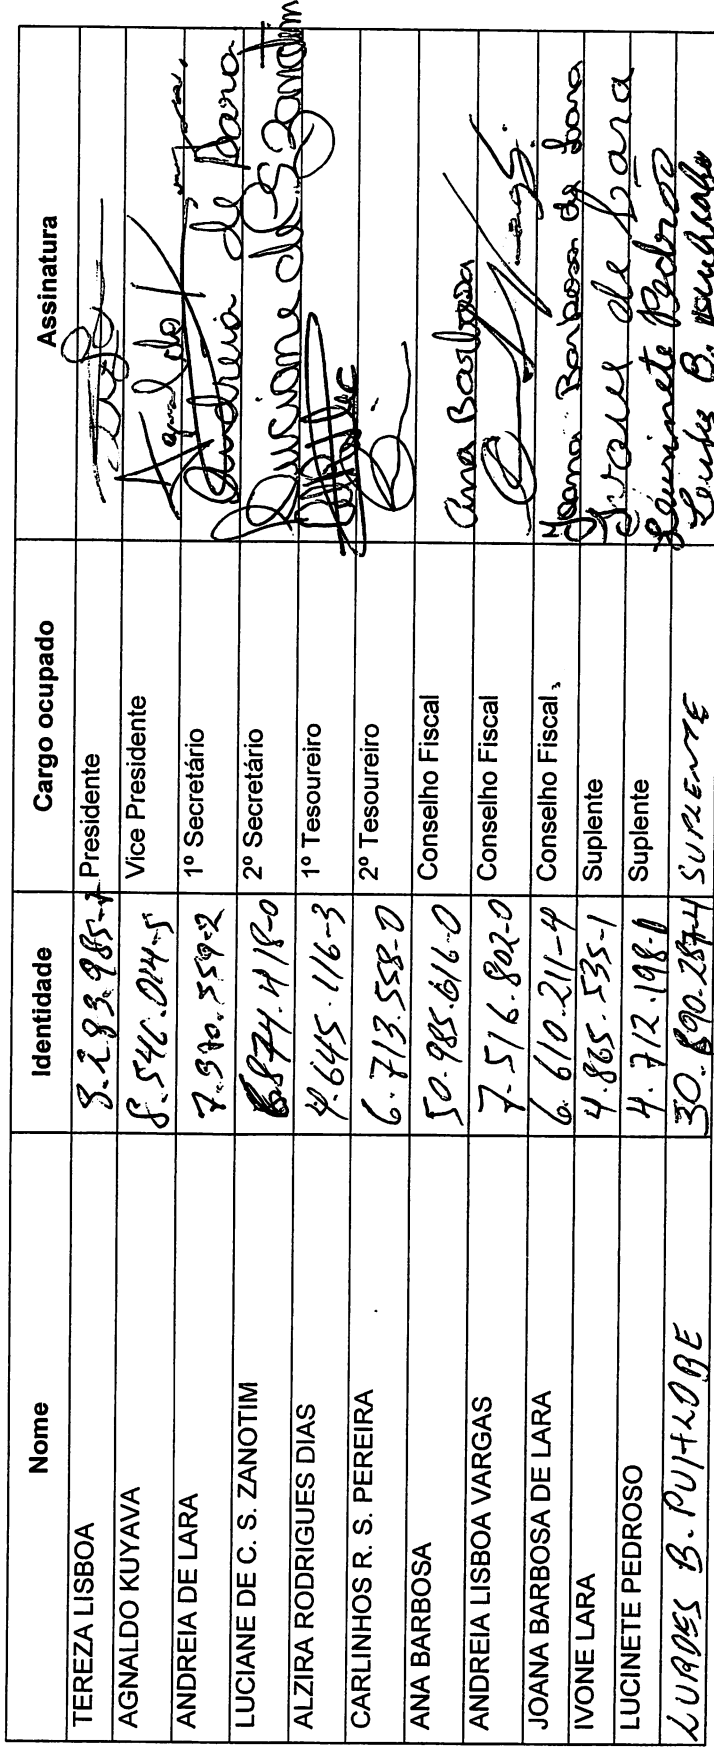 Nome Identidade Cargo ocupado Assinatura
TEREZA LISBOA Presidente
AGNALDO KUYAVA 8.546.014-5 Vice Presidente Agnaldo
ANDREIA DE LARA 7.370.359-2 1º Secretário Andreia de Lara
LUCIANE DE C. S. ZANOTIM 874.418-0 2º Secretário Luciane de C S Zanotim
ALZIRA RODRIGUES DIAS 4.645.116-3 1º Tesoureiro
CARLINHOS R. S. PEREIRA 6.713.558-0 2º Tesoureiro
ANA BARBOSA 50.985.616-0 Conselho Fiscal Ana Barbosa
ANDREIA LISBOA VARGAS 7.516.802-0 Conselho Fiscal
JOANA BARBOSA DE LARA 6.610.211-4 Conselho Fiscal Joana Barbosa de Lara
IVONE LARA 4.865.535-1 Suplente Ivone de Lara
LUCINETE PEDROSO 4.712.198-0 Suplente Lucinete Pedroso
LURDES B. SUPLENTE B.